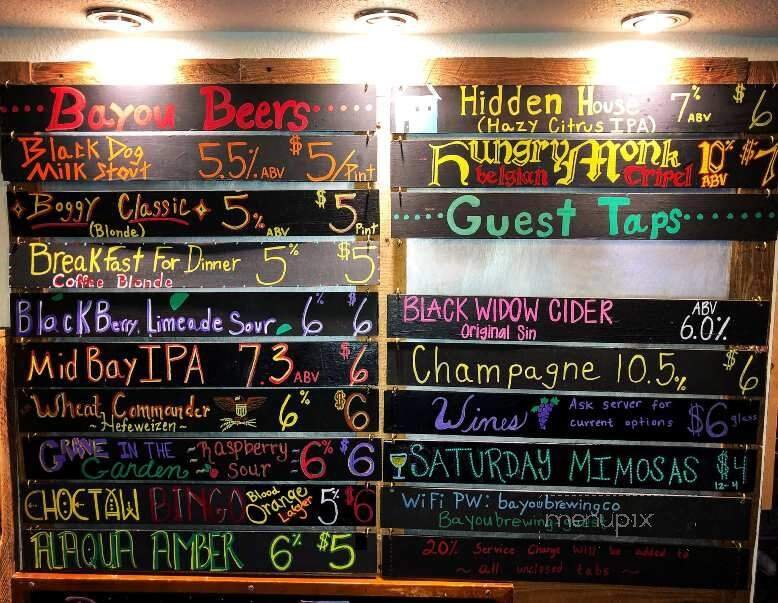 Bayou Beers
Black Dog
Milk Stout 5.5% ABV $5/Pint
Boggy Classic 5% ABV $5 Pint
(Blonde)
Breakfast For Dinner 5% $5
Coffee Blonde
BlackBerry Limeade Sour 6% $6
Mid Bay IPA 7.3 ABV $6
Wheat Commander 6% $6
~ Hefeweizen ~
GRAVE IN THE Garden ~Raspberry Sour 6% $6
CHOCTAW BINGO Blood Orange Lager 5% $6
ALAQUA AMBER 6% $5
Hidden House 7% ABV $6
(Hazy Citrus IPA)
Hungry Monk 10% ABV
belgian Tripel
Guest Taps
BLACK WIDOW CIDER ABV 6.0%
Original Sin
Champagne 10.5% $6
Wines Ask server for current options $6 glass
SATURDAY MIMOSAS $4 12-4
WiFi PW: bayoubrewingco
20% Service Charge will be added to
~ all unclosed tabs ~
menupix